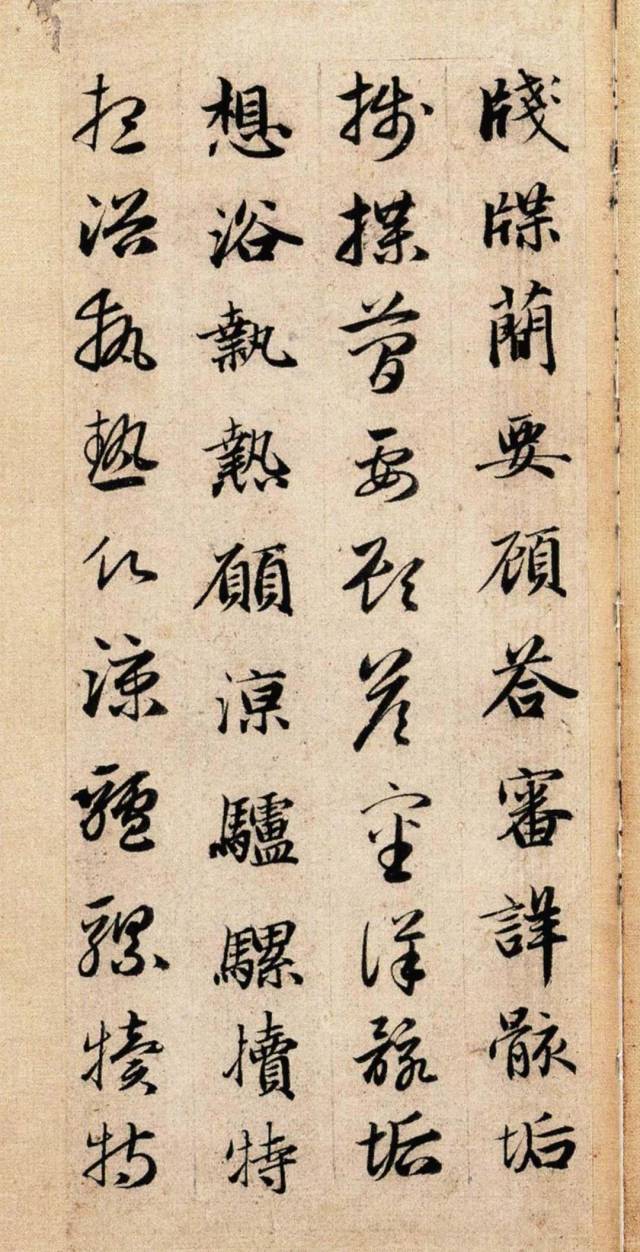 牋牒簡要顧答審詳骸垢
牋牒簡要顧答審詳骸垢
想浴執熱願涼驢騾犢特
想浴執熱願涼驢騾犢特